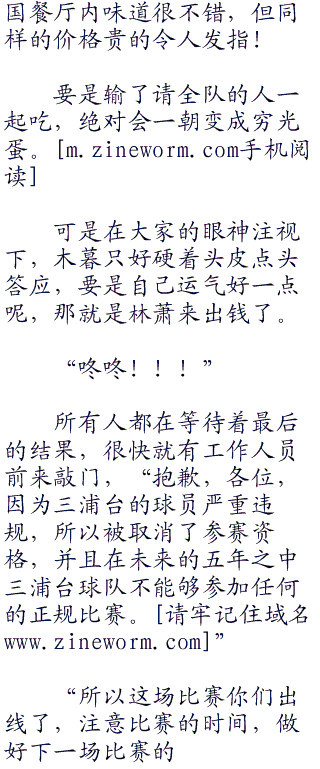 国餐厅内味道很不错，但同
样的价格贵的令人发指！
要是输了请全队的人一
起吃，绝对会一朝变成穷光
蛋。[m.zineworm.com手机阅
读]
可是在大家的眼神注视
下，木暮只好硬着头皮点头
答应，要是自己运气好一点
呢，那就是林萧来出钱了。
“咚咚！！！”
所有人都在等待着最后
的结果，很快就有工作人员
前来敲门，“抱歉，各位，
因为三浦台的球员严重违
规，所以被取消了参赛资
格，并且在未来的五年之中
三浦台球队不能够参加任何
的正规比赛。[请牢记住域名
www.zineworm.com]”
“所以这场比赛你们出
线了，注意比赛的时间，做
好下一场比赛的